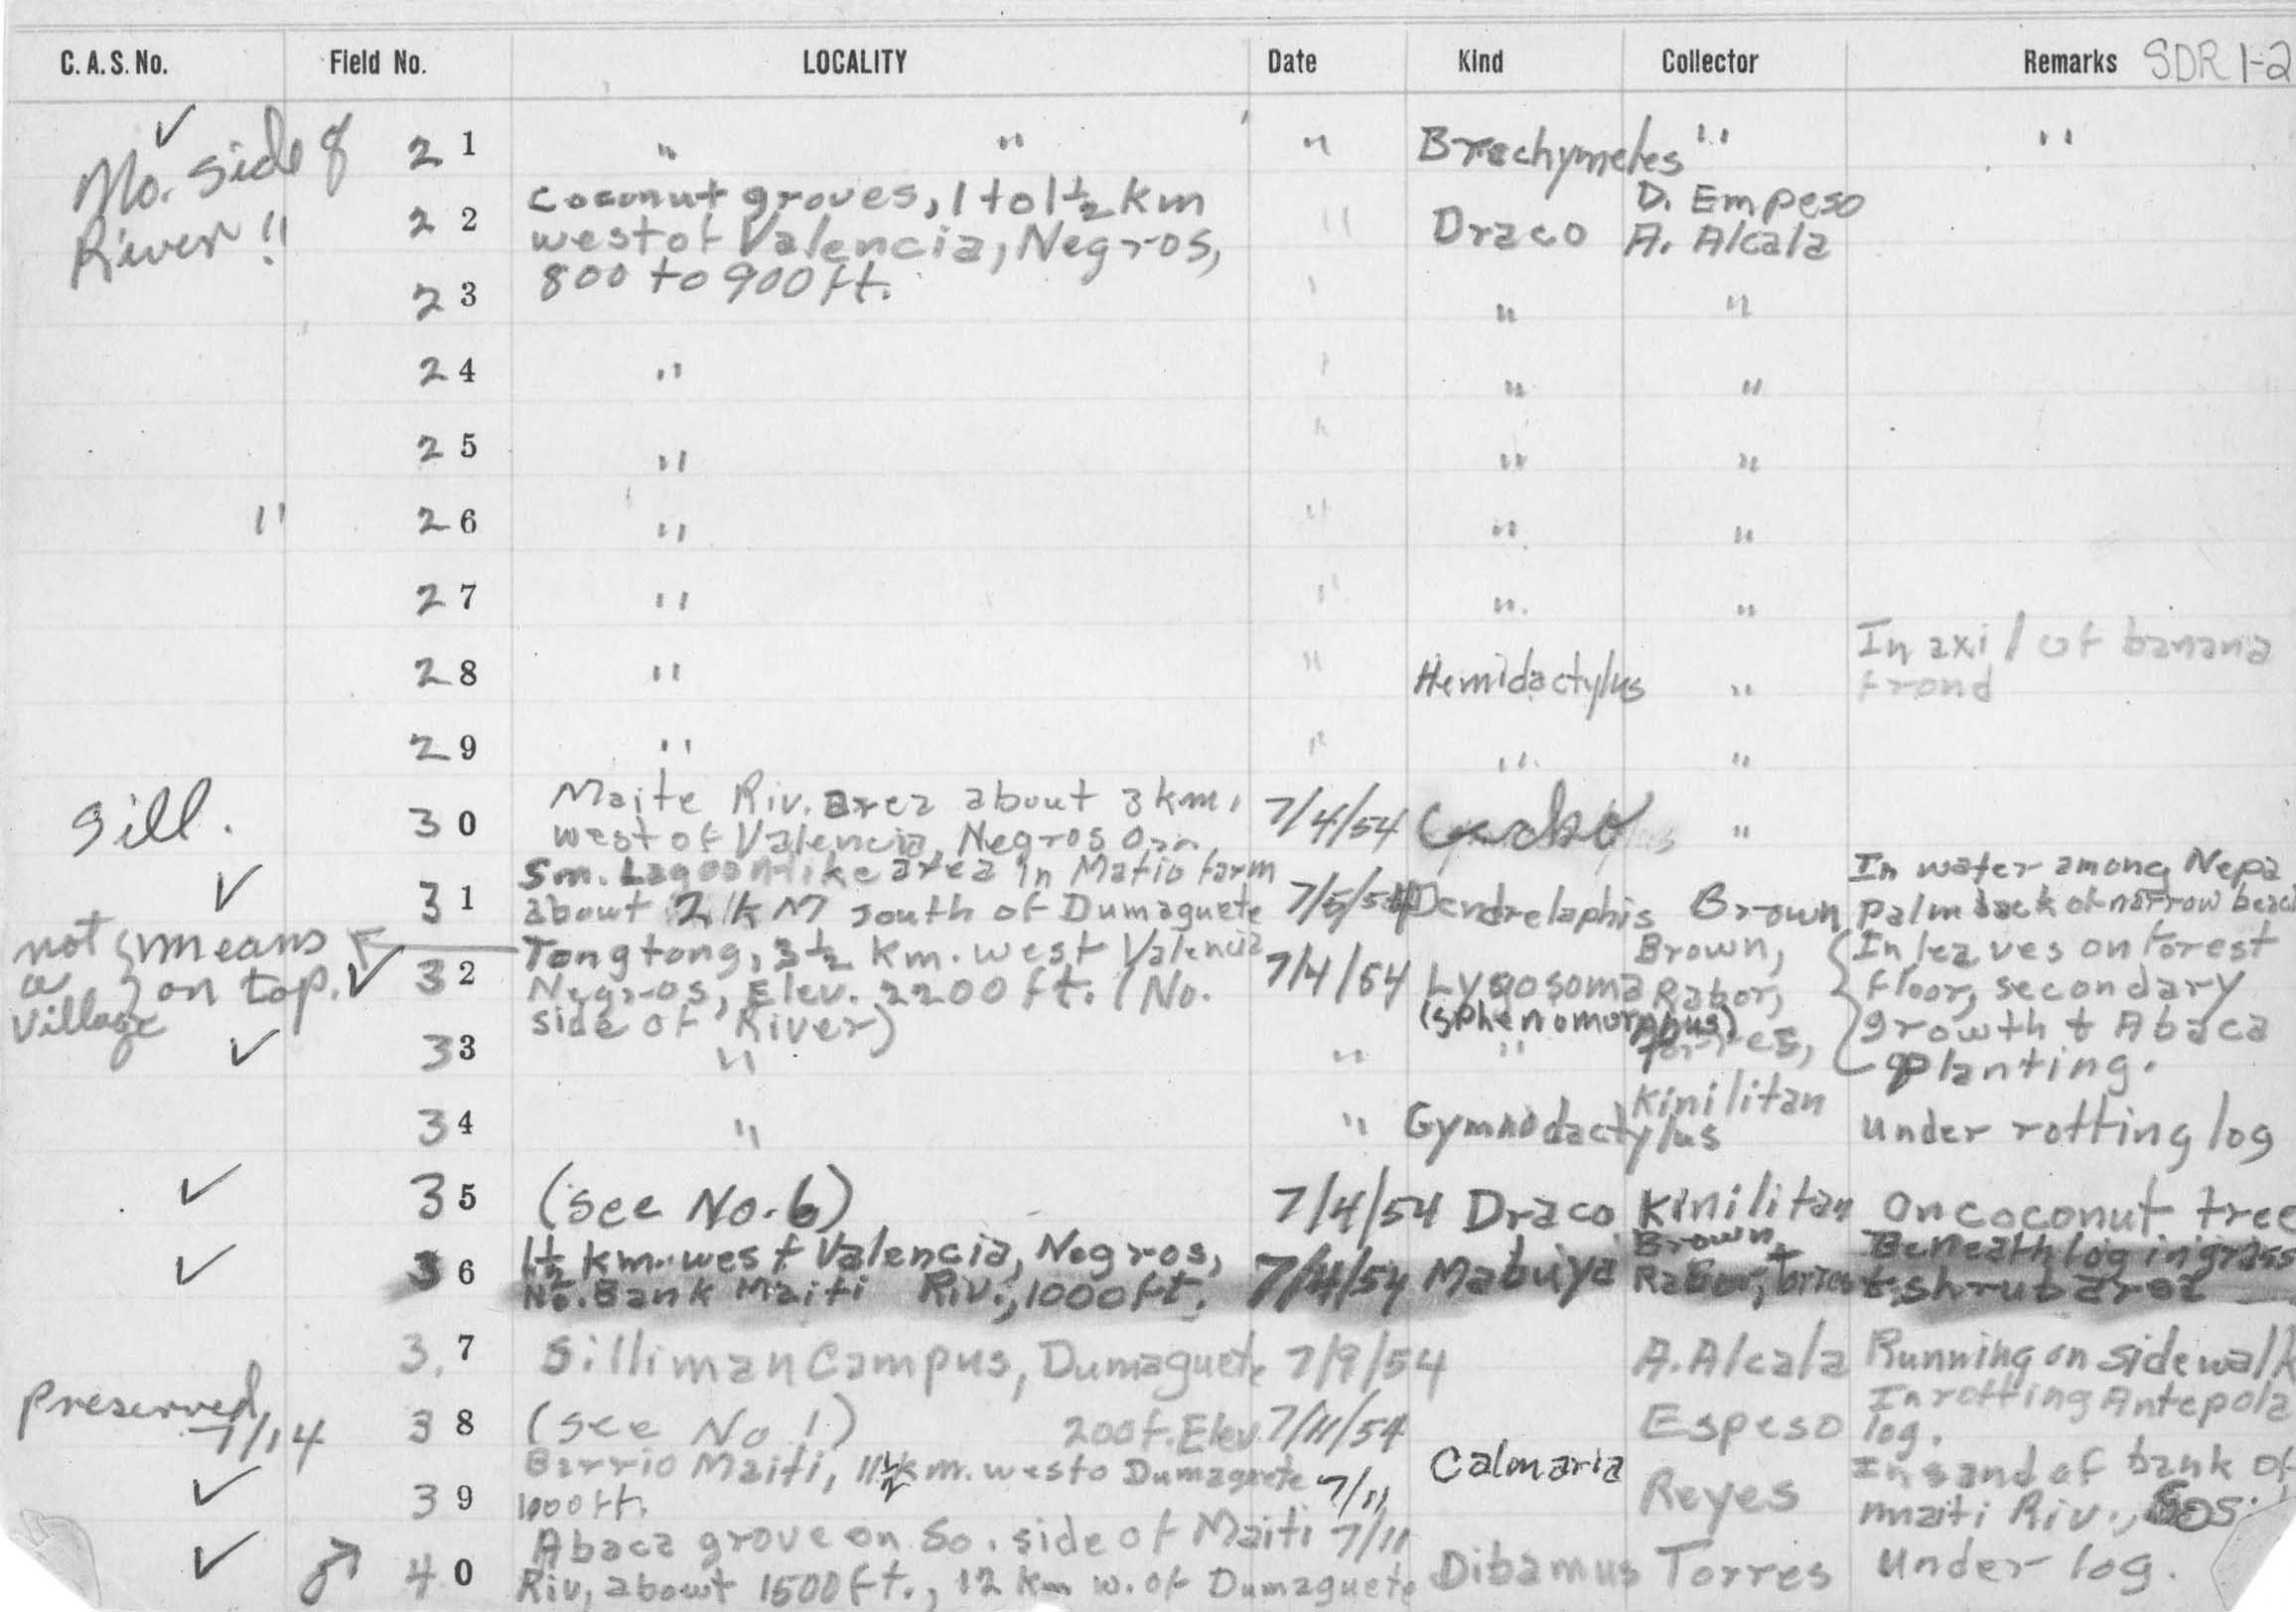 C.A.S. No. Field No. LOCALITY Date Kind Collector Remarks SDR 1-2
✓ No. side of River !! 21 " " " Brachymeles " "
22 coconut groves, 1 to 1½ km west of Valencia, Negros, 800 to 900 ft. " Draco D. Empeso A. Alcala
23 " " "
24 " " " "
25 " " " "
" 26 " " " "
27 " " " "
28 " " Hemidactylus " In axil of banana frond
29 " " " "
Sill. 30 Maite Riv. area about 3 km. west of Valencia, Negros Orn. 7/4/54 Gecko "
✓ 31 Sm. Lagoon like area in Matio farm about 2 km south of Dumaguete 7/5/54 Dendrelaphis Brown In water among Nepa palm back of narrow beach
not a village } means on top. ✓ 32 Tongtong, 3½ km. west Valencia Negros, Elev. 2200 ft. (No. side of River) 7/4/54 Lygosoma (sphenomorphus) Brown, Rabor, Torres, In leaves on forest floor, secondary growth + Abaca planting.
✓ 33 " " "
34 " " Gymnodactylus Kinilitan under rotting log
✓ 35 (see No. 6) 7/4/54 Draco Kinilitan On coconut tree
✓ 36 1½ km. west Valencia, Negros, No. Bank Maiti Riv., 1000 ft. 7/4/54 Mabuya Brown, Rabor, + Torres Beneath log in grass + shrub area
37 Silliman Campus, Dumaguete 7/9/54 A. Alcala Running on sidewalk
preserved 7/14 38 (see No 1) 200 f. Elev. 7/11/54 Espeso In rotting Antepola log.
✓ 39 Barrio Maiti, 11½ km. west o Dumaguete 1000 ft. 7/11 Calmaria Reyes In sand of bank of maiti Riv.,
✓ ♂ 40 Abaca grove on So. side of Maiti Riv, about 1500 ft., 12 km w. of Dumaguete 7/11 Dibamus Torres Under log.